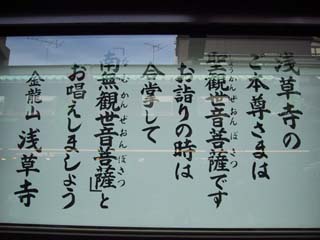 浅草寺の
ご本尊さまは
聖観世音菩薩です
お詣りの時は
合掌して
「南無観世音菩薩」と
お唱えしましょう
金龍山 浅草寺